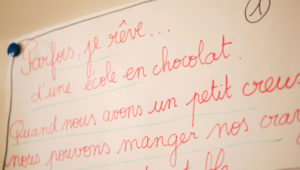 ①
Parfois, je rêve...
d'une école en chocolat.
Quand nous avons un petit creux
nous pouvons manger nos cray